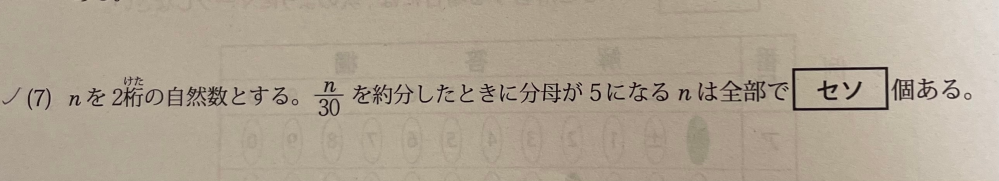 (7) nを2桁の自然数とする。n/30を約分したときに分母が5になるnは全部で セソ 個ある。
けた